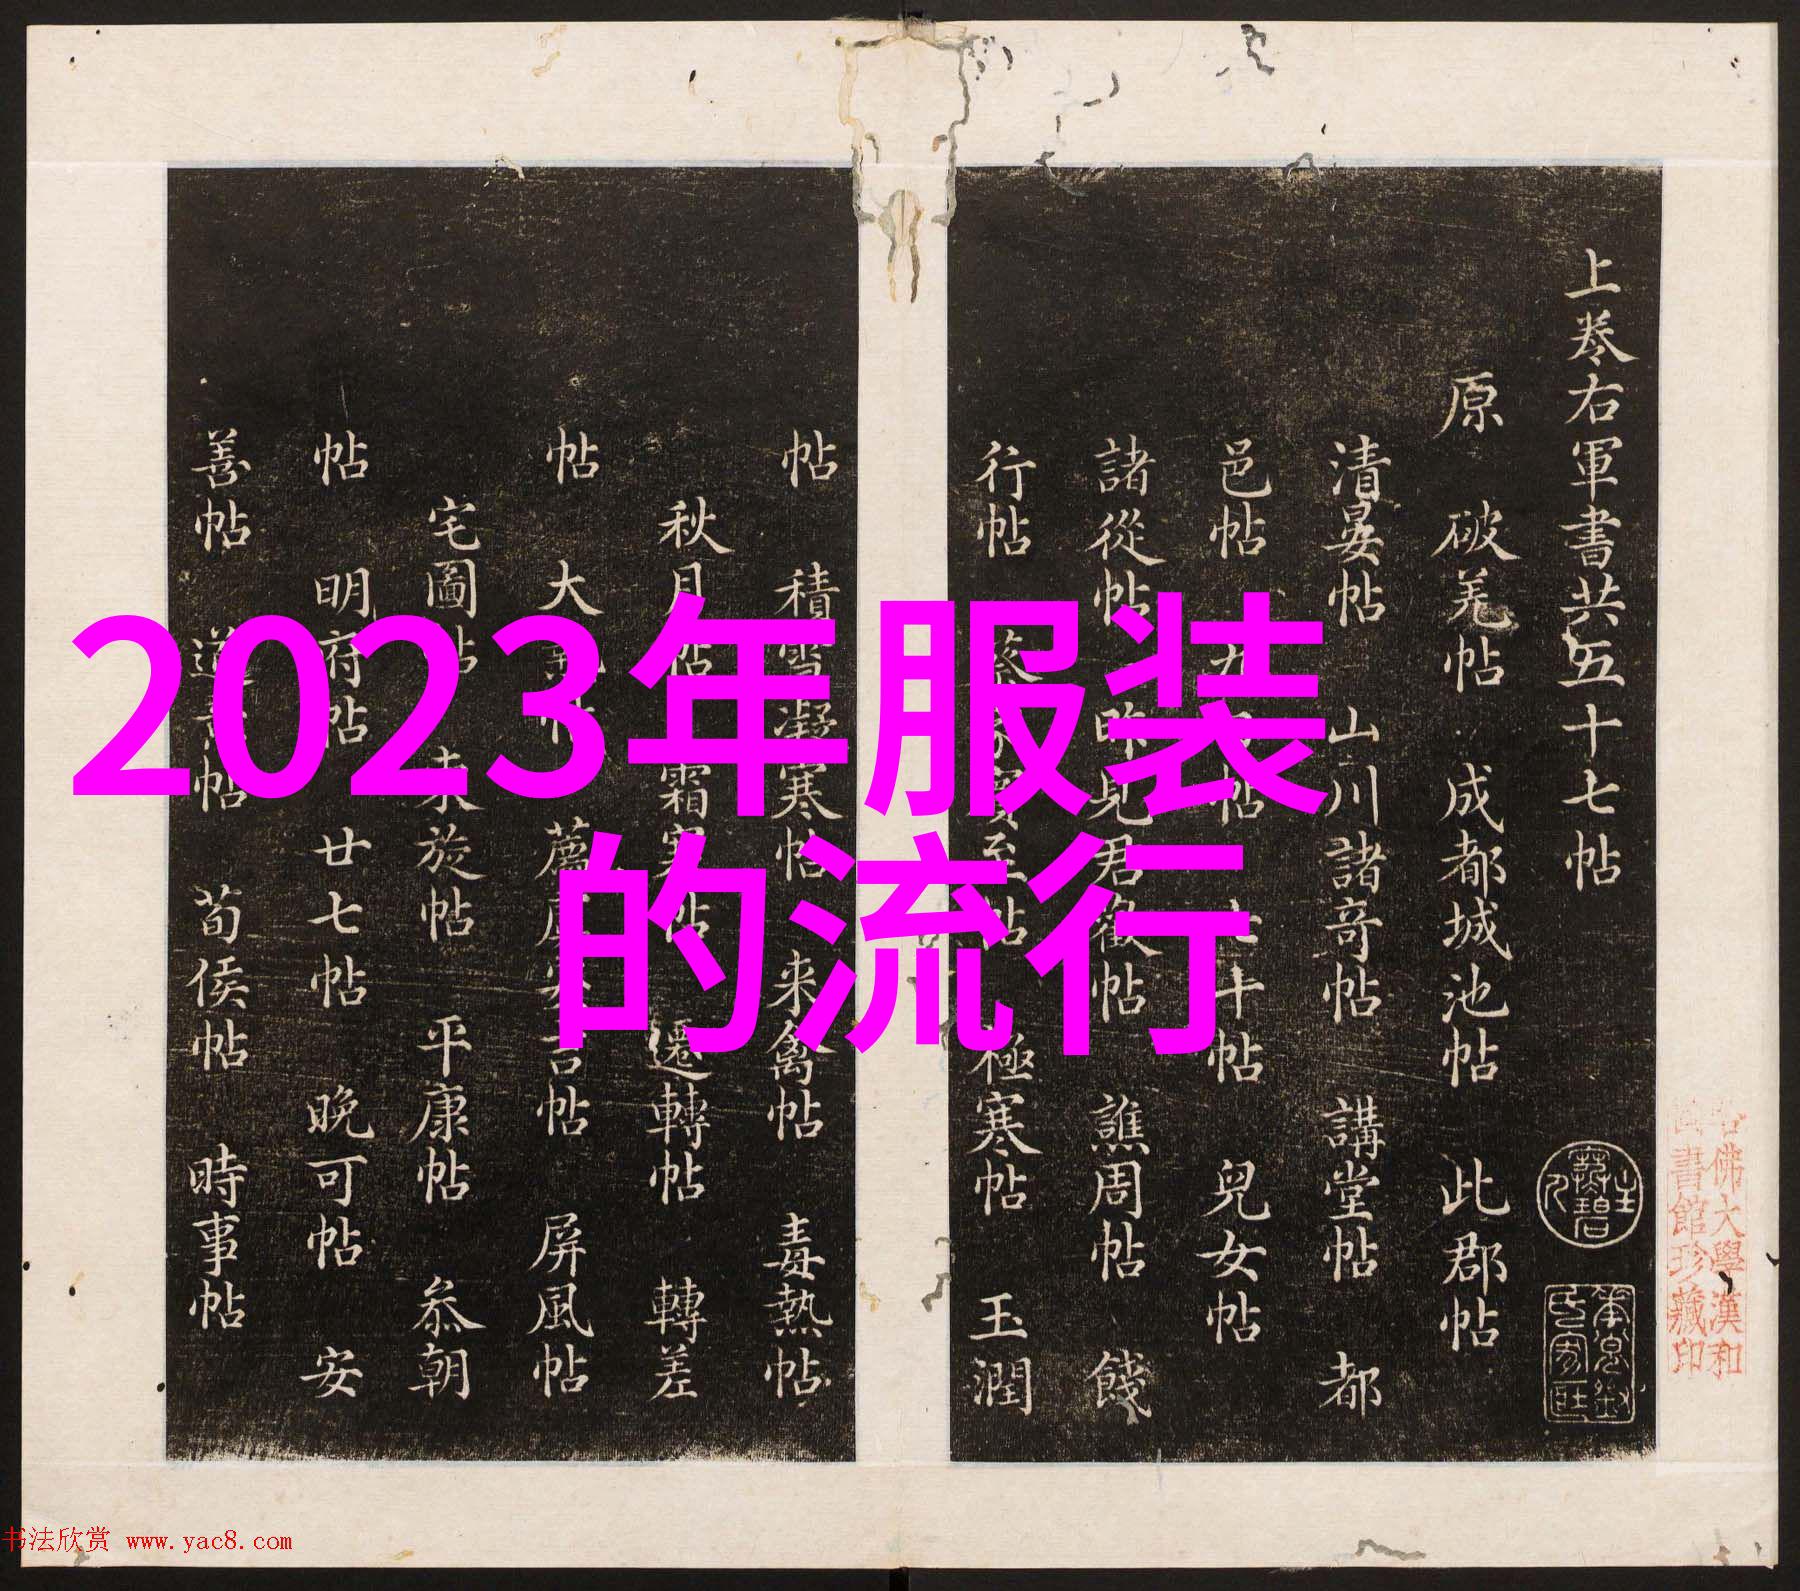 2023年服装
的流行
上卷右軍書共五十七帖
原 破羌帖 成都城池帖 此郡帖
清晏帖 山川諸奇帖 講堂帖 都
邑帖 帖 七十帖 兒女帖
諸從帖 昨見君 帖 譙周帖 餞
行帖 至帖 極寒帖 玉潤
帖 積雪凝寒帖 来禽帖 毒熱帖
秋月帖 霜寒帖 遷轉帖 轉差
帖 大 帖 屏風帖
宅圖帖 未旋帖 平康帖 叅朝
帖 明府帖 廿七帖 晚可帖 安
善帖 帖 荀侯帖 時事帖
佛大學漢和
書館珍藏印
书法欣赏 www.yac8.com